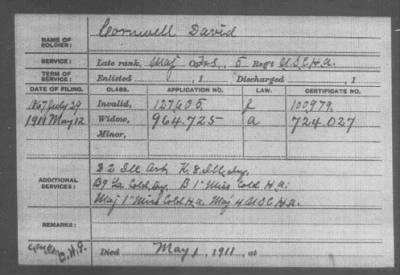 NAME OF SOLDIER: Cornwell David
SERVICE: Late rank, Maj 5 Reg't U.S.C.H.A.
TERM OF SERVICE: Enlisted , 1 Discharged , 1
DATE OF FILING. CLASS. APPLICATION NO. LAW. CERTIFICATE NO.
July 29 Invalid, 127605 100,979
1911 May 12 Widow, 964.725 a 724.027
Minor,
ADDITIONAL SERVICES: K 8 Ill. Inf.
B 9 La. Cold B 1" Miss Cold H.A.
Maj 1" Miss Cold H.A. Maj 4 U.S.C.H.A.
REMARKS:
Died May 1, 1911, at